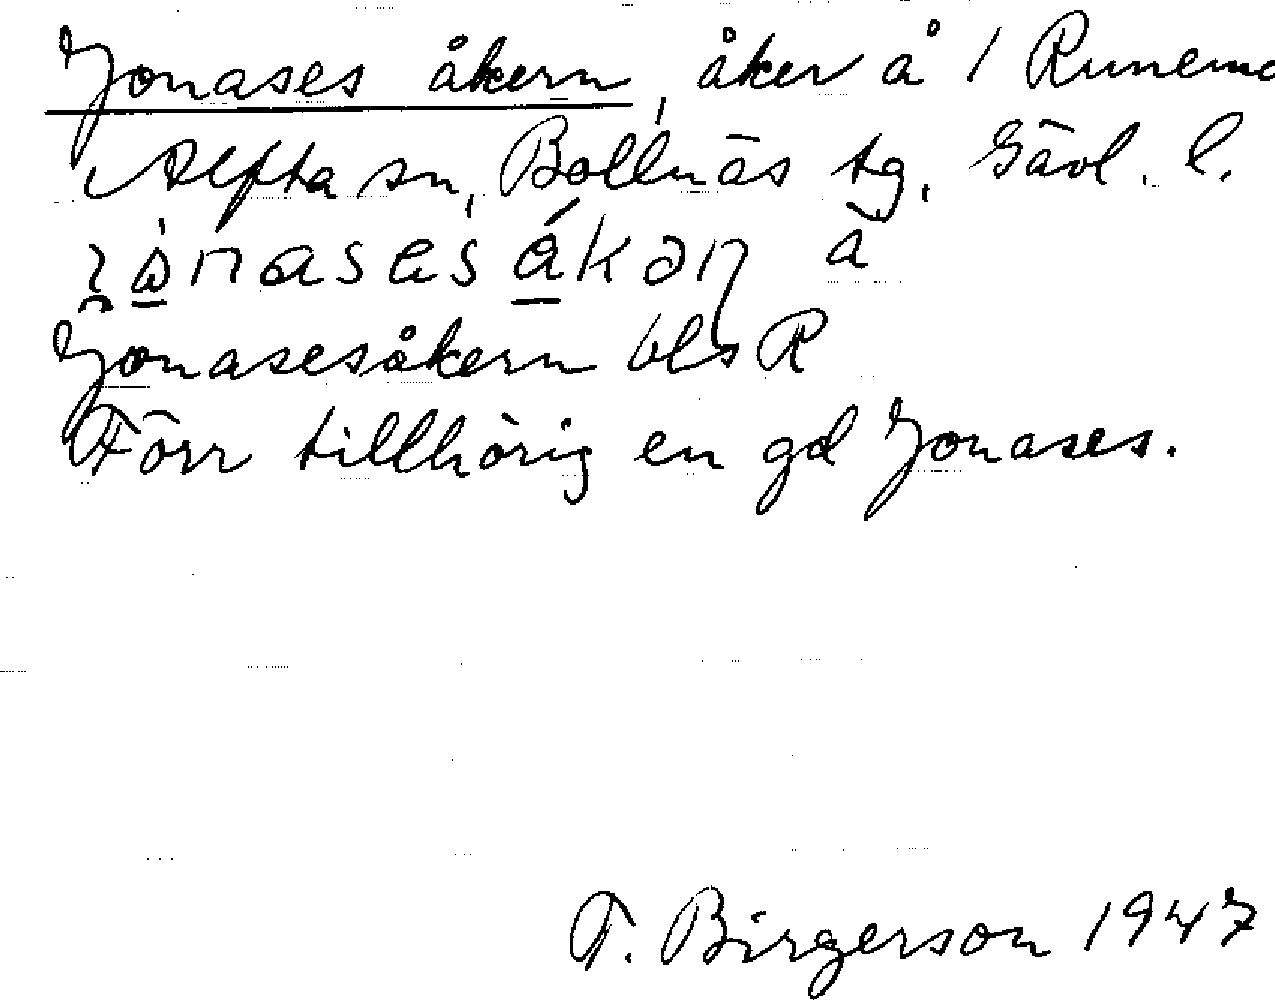 Jonases åkern, åker å 1 Runemo
Alfta sn, Bollnäs tg. Gävl. l.
Jonasesåkern bls R
Förr tillhörig en gd Jonases.
T. Birgerson 1947